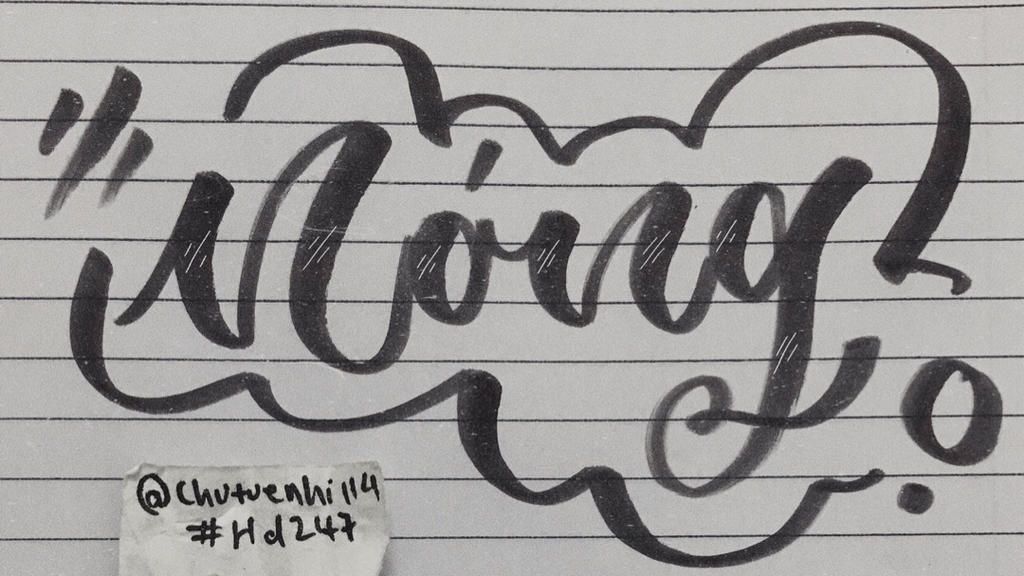 Nóng
@chutuenhi114
#Hd247